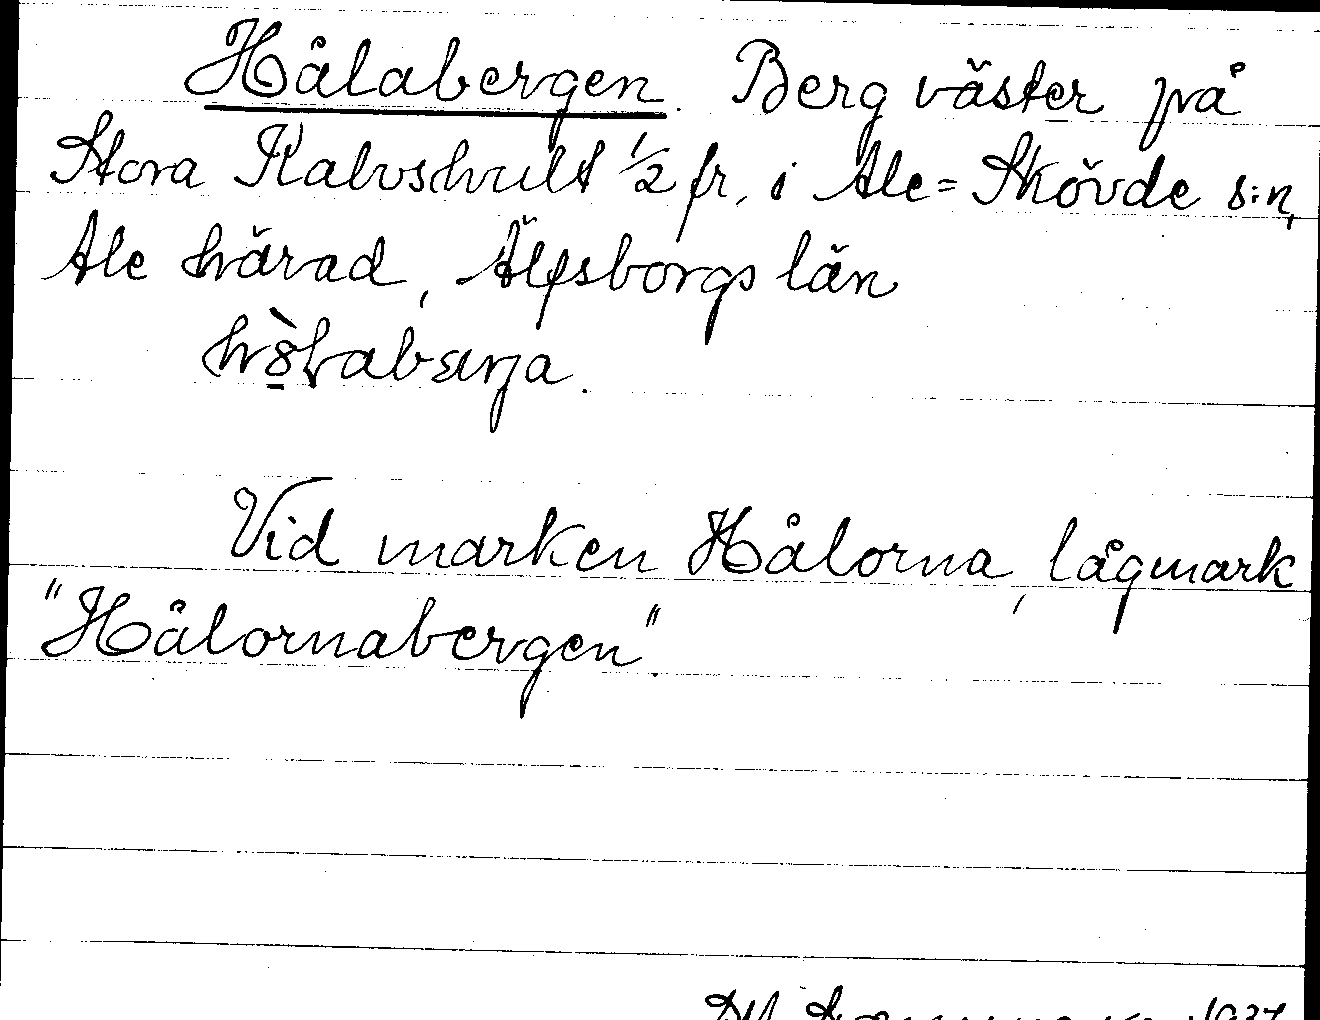 Hålabergen. Berg väster på
Stora Kalvshult ½ fr. i Ale=Skövde s:n,
Ale härad, Älfsborgs län
Vid marken Hålorna, lågmark
"Hålornabergen".
1937